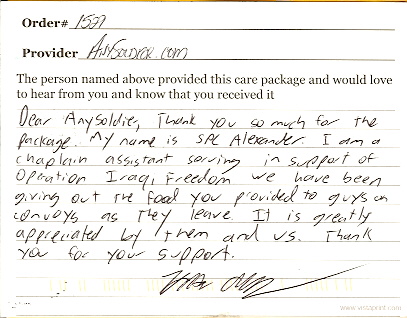 Order# 1539
Provider AnySoldier.com
The person named above provided this care package and would love
to hear from you and know that you received it
Dear AnySoldier, Thank you so much for the
package. My name is SPC Alexander. I am a
chaplain assistant serving in support of
Operation Iraqi Freedom we have been
giving out the food you provided to guys on
convoys as they leave. It is greatly
appreciated by them and us. Thank
you for your support.
www.vistaprint.com